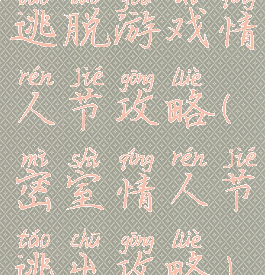 táo tuō yóu xì qíng
逃脱游戏情
rén jié gōng lüè
人节攻略(
mì shì qíng rén jié
密室情人节
táo chū gōng lüè
逃出攻略)